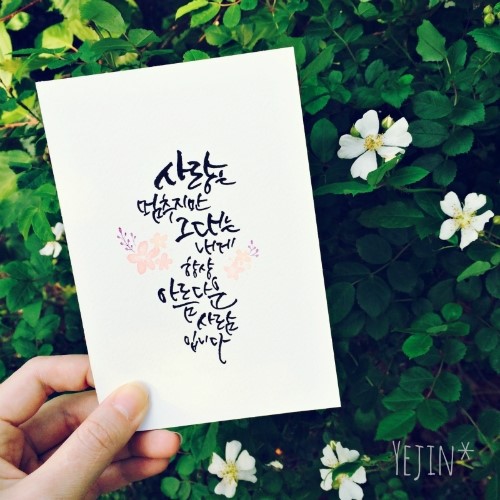 사랑은
멈추지만
그대는
내게
항상
아름다운
사람
입니다
YEJIN*